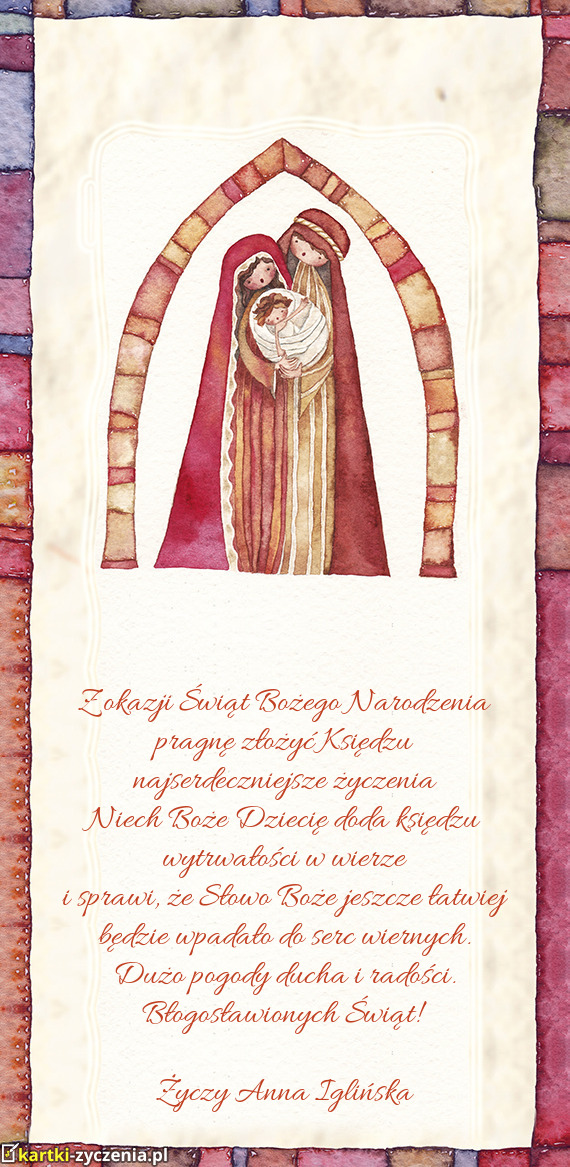 Z okazji Świąt Bożego Narodzenia
pragnę złożyć Księdzu
najserdeczniejsze życzenia
Niech Boże Dziecię doda księdzu
wytrwałości w wierze
i sprawi, że Słowo Boże jeszcze łatwiej
będzie wpadało do serc wiernych.
Dużo pogody ducha i radości.
Błogosławionych Świąt!
Życzy Anna Iglińska
kartki-zyczenia.pl